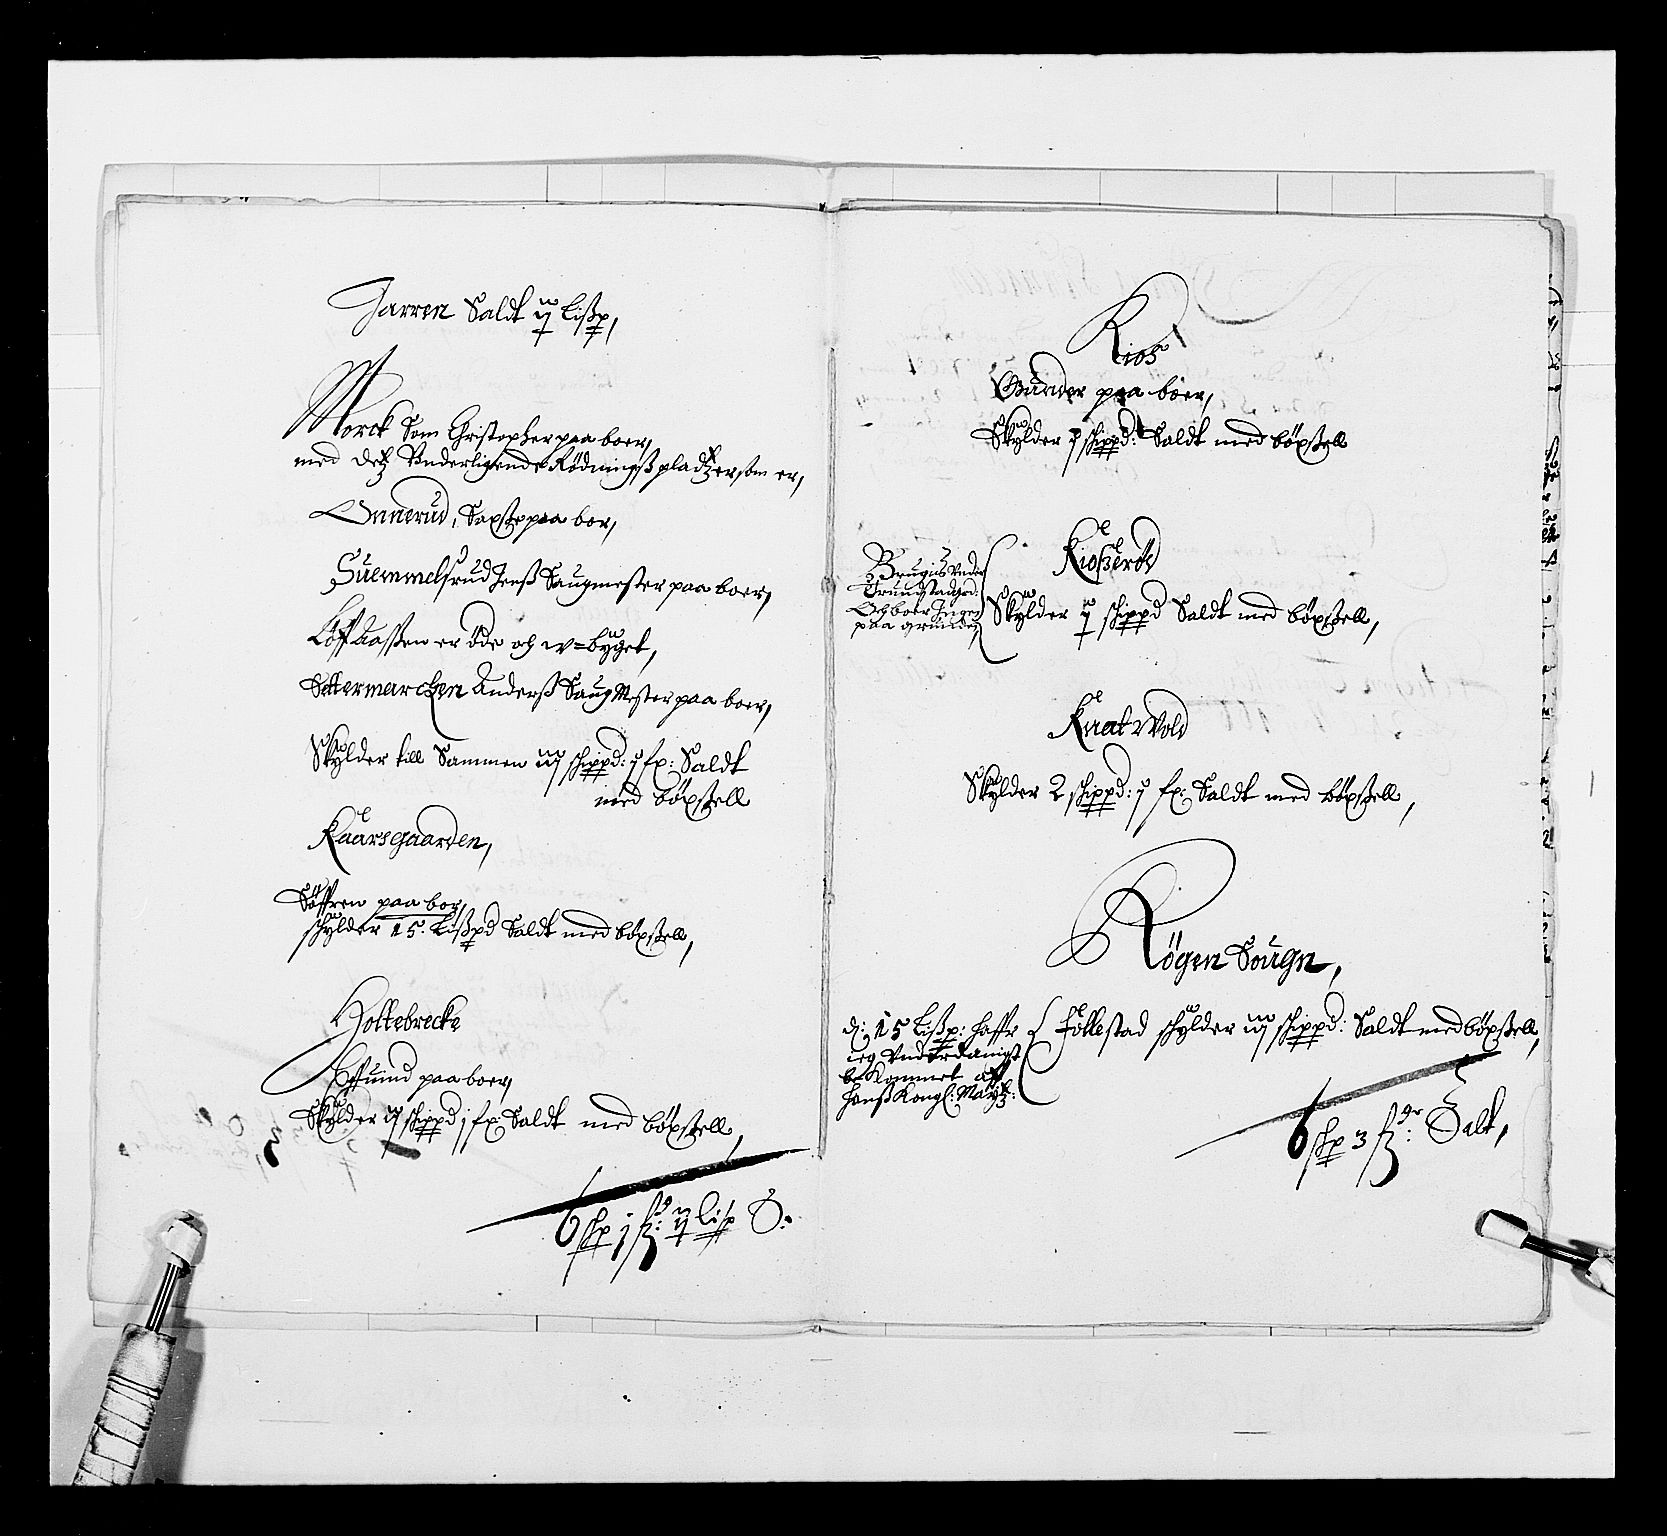 Jarren Saldt ij Lißp,
Morck Som Christopher paa boer,
med detz Vnderligende Rödningß pladtzer som er,
Onnerud, Saxste paa bor,
Suemmelsrud Jenß Saugmester paa boer,
Löff Aassen er öde och w=byget,
Settermarchen Anderß Saug Mester paa boer,
Skylder till Sammen iij schippd: j fx: Saldt
med böxßell
Kaarsgaarden,
Söffren paa bor,
schylder 15. Lißpd Saldt med böxßell,
Holtebrecke
Effuind paa boer,
Skylder ij schippd j fx: Saldt med böxßell,
6 schp j fz: ij lisp S:
Kios
Gunder paa boer,
Skylder j schippd: Saldt med böxßell
Kioßeröd
Brugis Vnder
Grundstadgrd:
Och boer Ingen
paa grunden
Skylder ij schippd Saldt med böxßell,
Knat Wold
Skylder 2 schippd: j fx: Saldt med böxßell,
Rögen Sougn,
di: 15 Lißp: haffr
ieg Vnderdanigst
bekommet aff
Hanß Kongl: Maytz:
Follestad schylder iij schippd: Saldt med böxßell,
6 schp 3 fz: Salt,